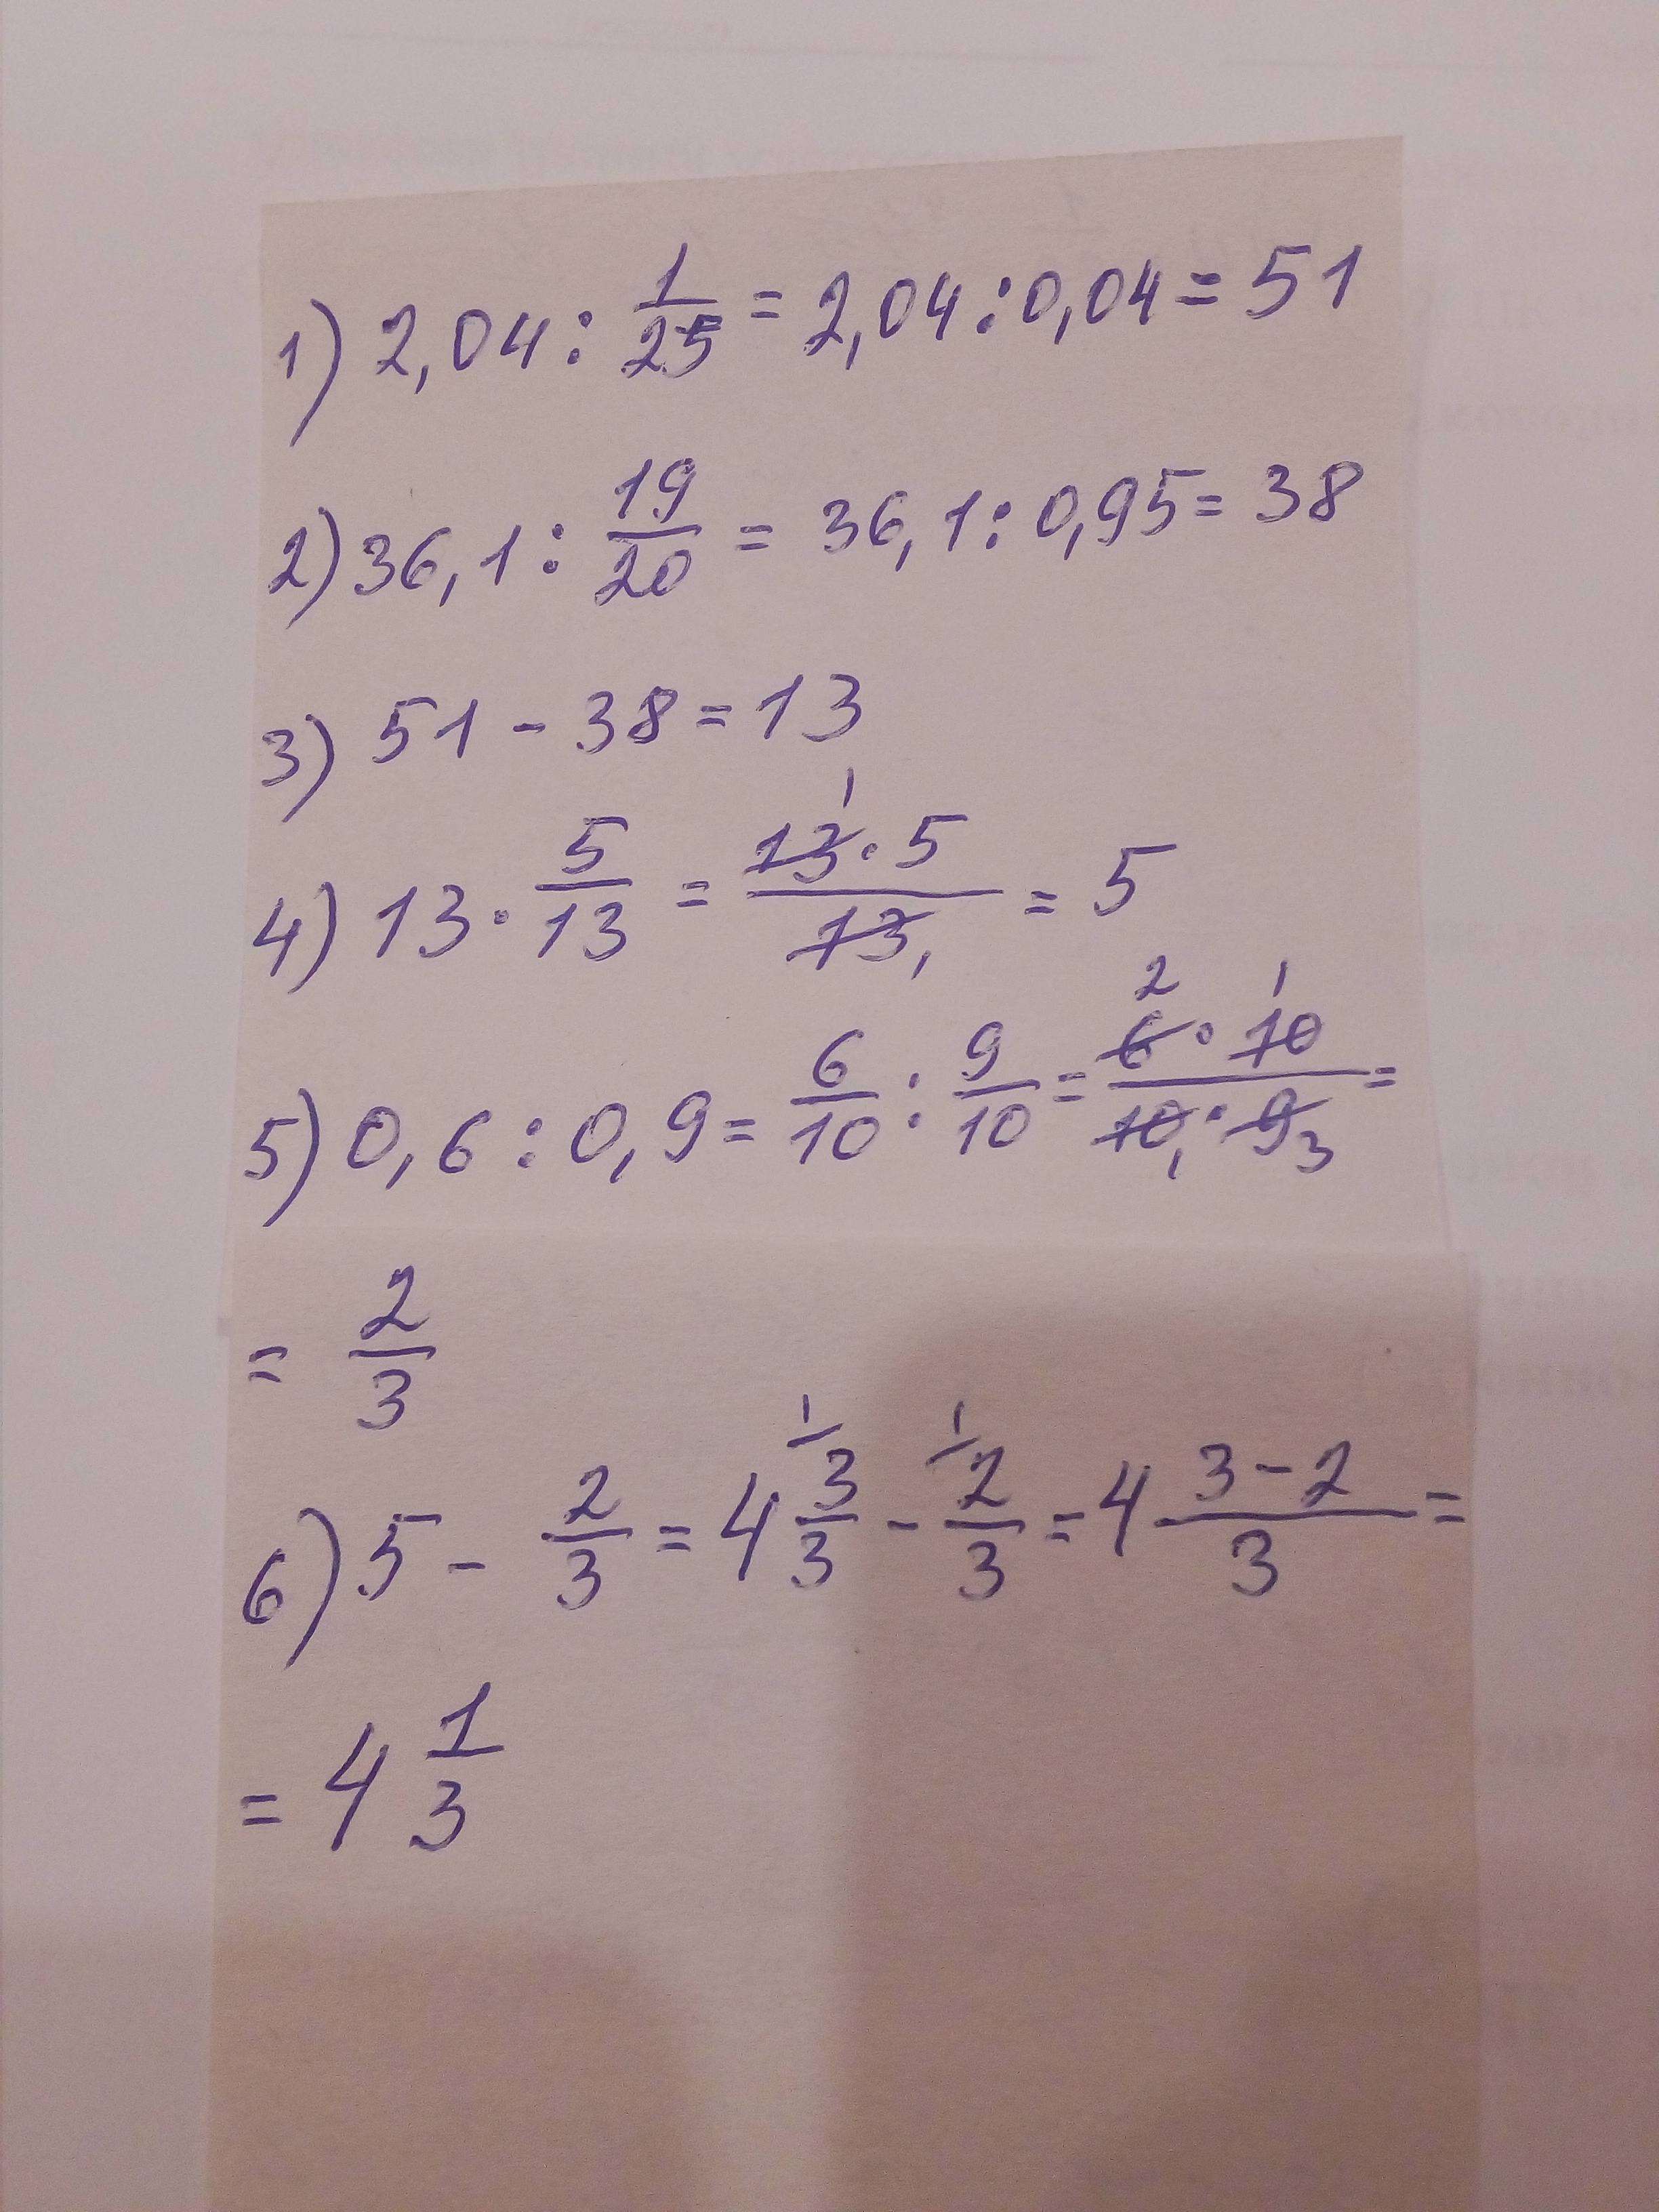 1) 2,04 : 1/25 = 2,04 : 0,04 = 51
2) 36,1 : 19/20 = 36,1 : 0,95 = 38
3) 51 - 38 = 13
4) 13 · 5/13 = 13¹ · 5/13₁ = 5
5) 0,6 : 0,9 = 6/10 : 9/10 = 6² · 10¹/10₁ · 9₃ =
= 2/3
6) 5 - 2/3 = 4 3/3 ¹ - 2/3 ¹ = 4 3-2/3 =
= 4 1/3